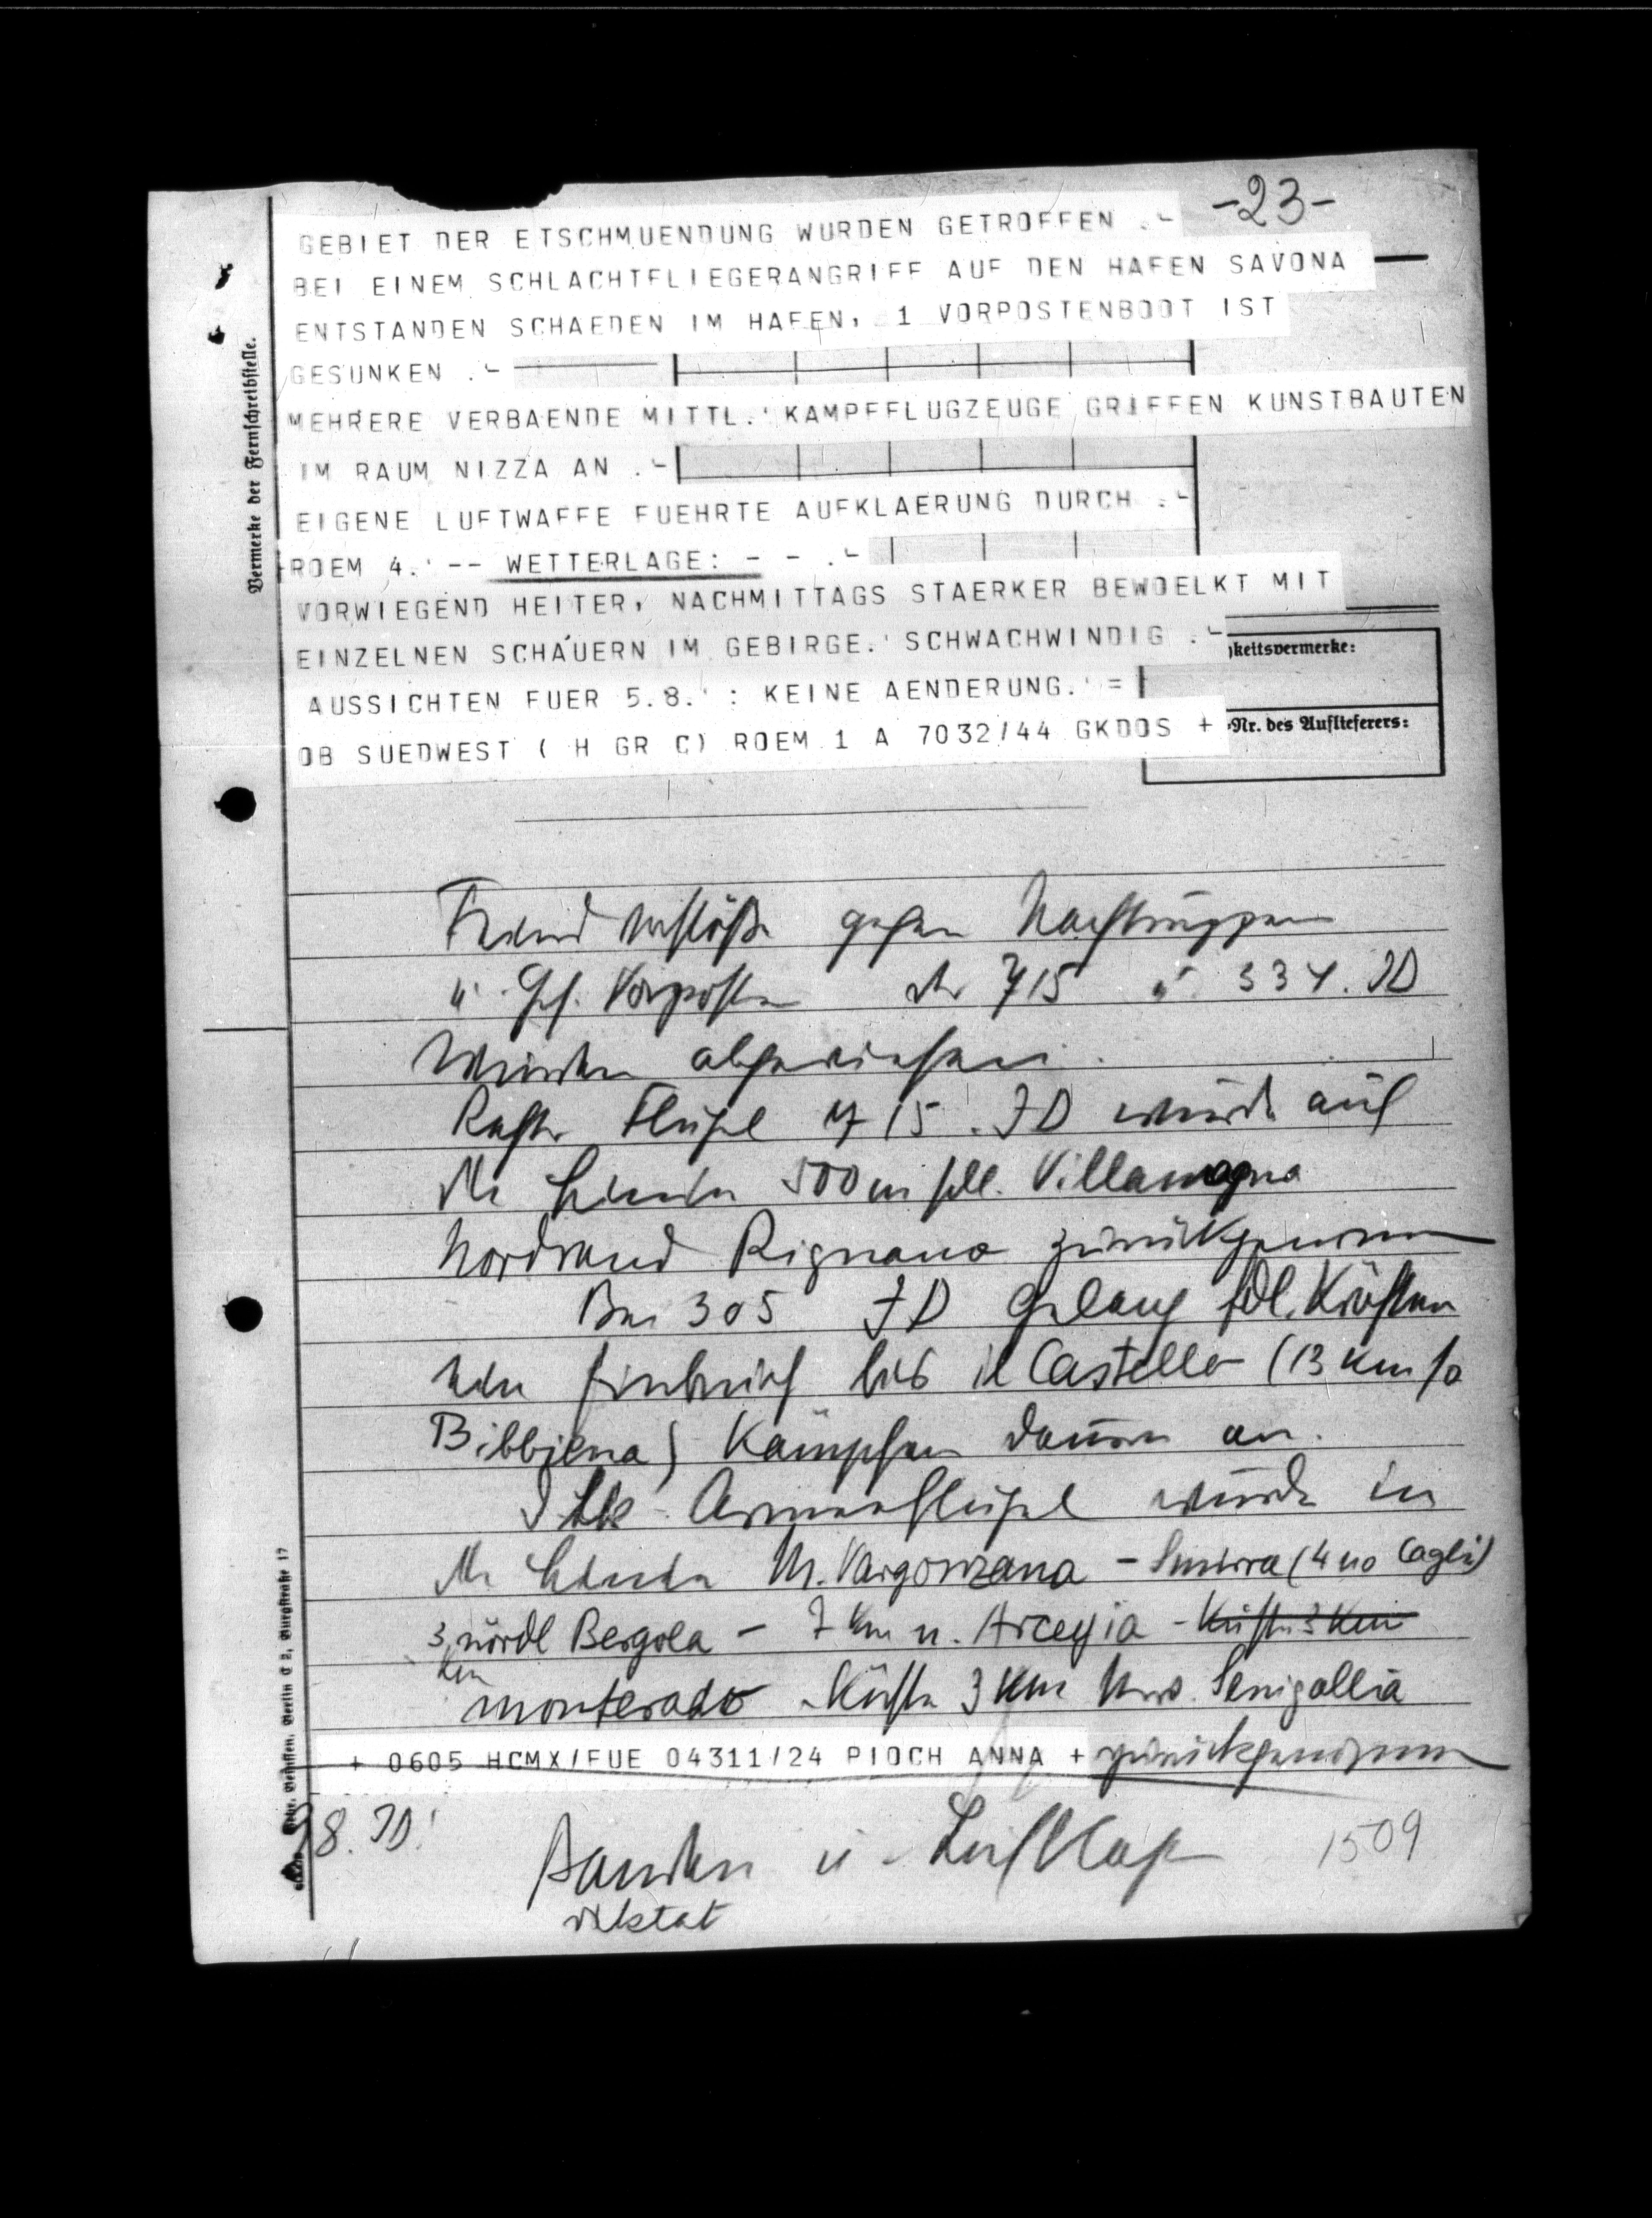 -23-
GEBIET DER ETSCHMUENDUNG WURDEN GETROFFEN .-
BEI EINEM SCHLACHTFLIEGERANGRIFF AUF DEN HAFEN SAVONA
ENTSTANDEN SCHAEDEN IM HAFEN, 1 VORPOSTENBOOT IST
GESUNKEN .-
MEHRERE VERBAENDE MITTL. KAMPFFLUGZEUGE GRIFFEN KUNSTBAUTEN
IM RAUM NIZZA AN .-
EIGENE LUFTWAFFE FUEHRTE AUFKLAERUNG DURCH .-
ROEM 4. -- WETTERLAGE: - - .-
VORWIEGEND HEITER, NACHMITTAGS STAERKER BEWOELKT MIT
EINZELNEN SCHAUERN IM GEBIRGE. SCHWACHWINDIG .-
AUSSICHTEN FUER 5.8. : KEINE AENDERUNG. =
OB SUEDWEST ( H GR C) ROEM 1 A 7032/44 GKDOS +
Vermerke der Fernschreibstelle.
keitsvermerke:
-Nr. des Auflieferers:
Feindvorstöße gegen Nachtruppen
u. Gef. Vorposten der 715 u. 334. ID
wurden abgewiesen.
Rechter Flügel 715. ID wurde auf
die Linie 500 m südl. Villamagna
Nordrand Rignano zurückgenommen
Bei 305 ID gelang fdl. Kräften
ein Einbruch bis il Castello (13 km so
Bibbiena) Kämpfe dauern an.
Armeeflügel wurde in
die Linie M. Vargonzana - Smirra (4 no Cagli)
3 km nördl Bergola - 7 km n. Arcevia - Küste 3 km
monterado - Küste 3 km nw. Senigallia
+ 0605 HCMX/FUE 04311/24 PIOCH ANNA + zurückgenommen
98. ID!
Banden u. Luftlage 1509
diktat
Berlin C 2, Burgstraße 17